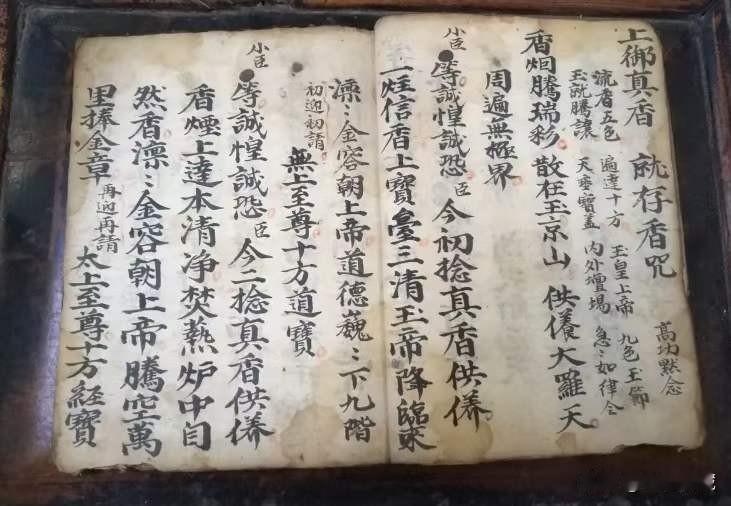 上御真香 就存香咒 高功黙念
流者五色 遍達十方 玉皇上帝 九色玉節
玉說騰讓 天垂寶蓋 內外壇場 急〻如律令
香烟騰瑞彩 散在玉京山 供養大羅天
周遍無極界
小臣●等誠惶誠恐臣今初捻真香供養
一炷信香上寶臺三清玉帝降臨來
凛〻金容朝上帝道德巍〻下九階
初迎初請 無上至尊十方道寶
小臣●等誠惶誠恐臣今二捻真香供養
香煙上達本清净焚熱炉中自
然香凛〻金容朝上帝騰空萬
里捧金章 再迎再請 太上至尊十方經寶